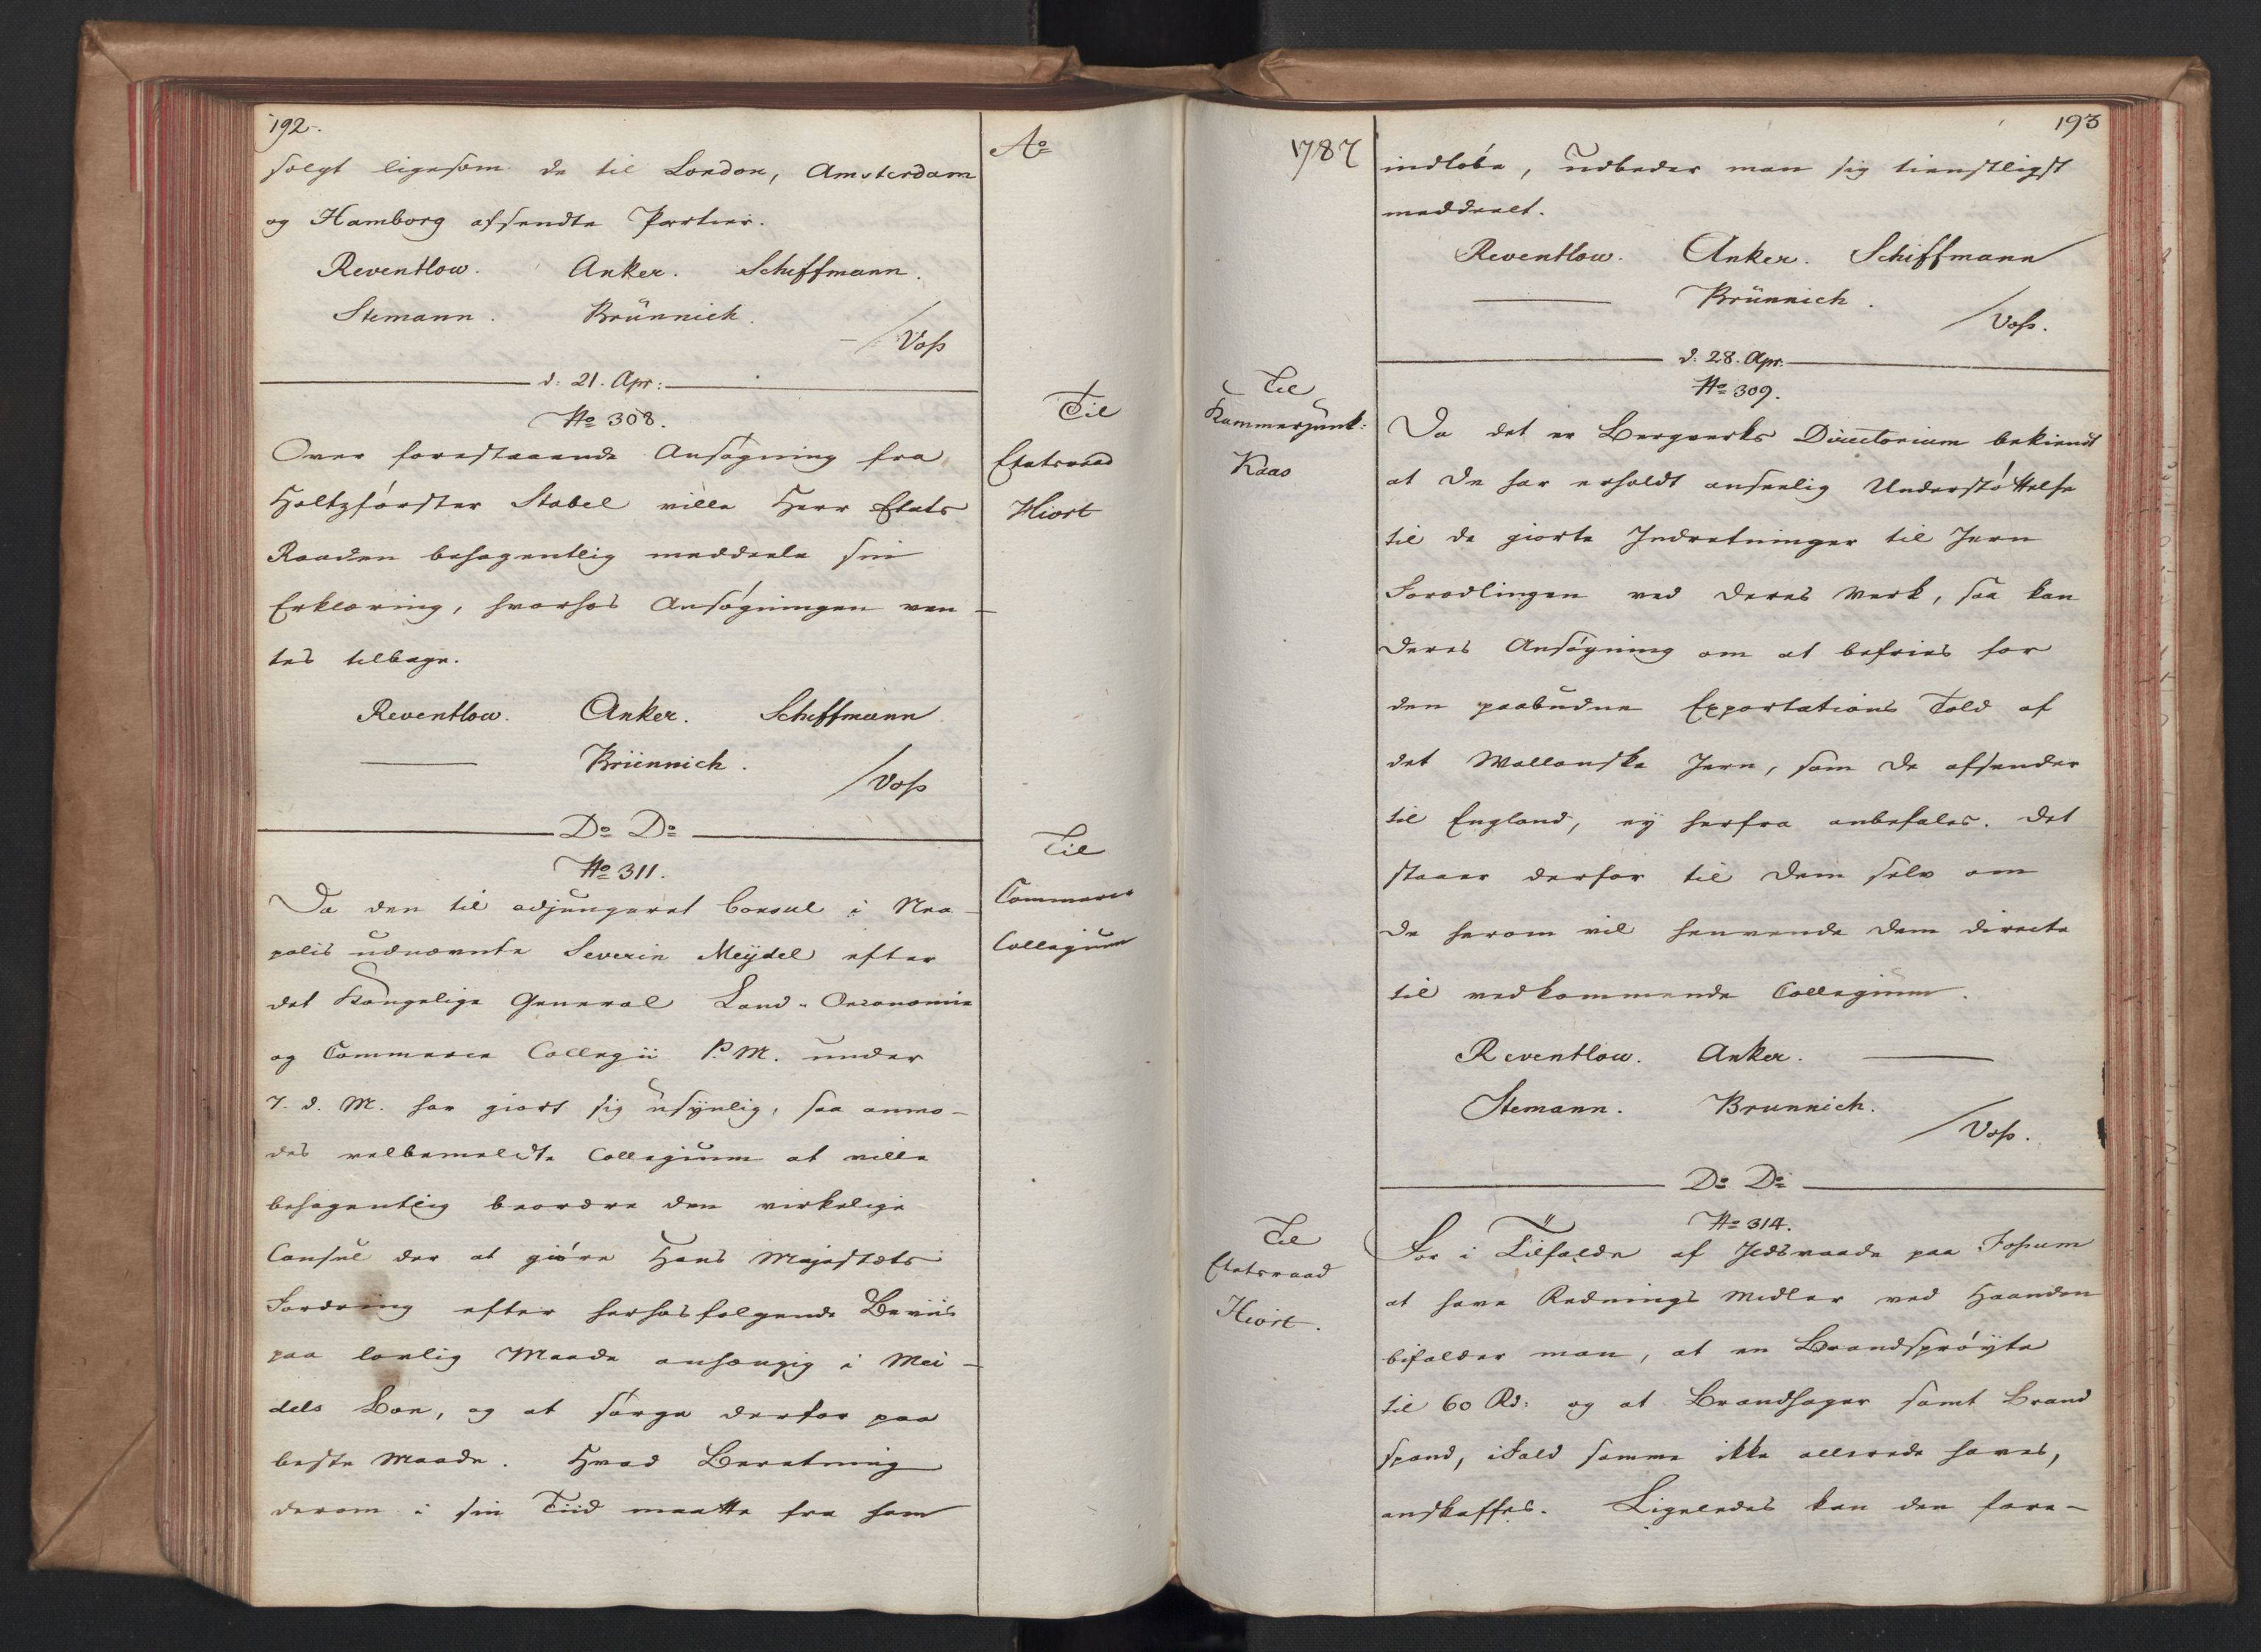 192.
Ao
solgt ligesom de til London, Amsterdam
og Hamborg afsendte Partier.
Reventlow. Anker. Schiffmann.
Stemann. Brünnich.
/Voss
d: 21. Apr:
No 308.
Til
Etatsraad
Hiort
Over forestaaende Ansøgning fra
Holtzførster Stabel ville Herr Etats
Raaden behagentlig meddeele sin
Erklæring, hvorhos Ansøgningen ven-
tes tilbage.
Reventlow. Anker. Schiffmann
Brünnich.
/Voss
Do Do
No 311.
Til
Commerce
Collegium
Da den til adjungeret Consul i Nea-
polis udnævnte Severin Meÿdel efter
det Kongelige General Land-Oeconomie
og Commerce Collegii P.M. under
7. d. M. har giort sig usÿnlig, saa anmo-
des velbemeldte Collegium at ville
behagentlig beordre den virkelige
Consul der at giøre Hans Majestæts
Fordring efter herhosfølgende Beviis
paa lovlig Maade anhængig i Mei-
dels Boe, og at sørge derfor paa
beste Maade. Hvad Beretning
derom i sin Tiid maatte fra ham
1787
193
indløbe, udbeder man sig tienstligst
meddeelt.
Reventlow. Anker. Schiffmann
Brünnich.
/Voss.
d: 28. Apr.
No 309.
Til
Kammerjunk:
Kaas
Da det er Bergverks Directorium bekiendt
at De har erholdt anseelig Understøttelse
til de giorte Indretninger til Jern
Forædlingen ved Deres Verk, saa kan
Deres Ansøgning om at befries for
den paabudne Exportations Told af
det Mallanske Jern, som De afsender
til England, eÿ herfra anbefales. Det
staaer derfor til Dem selv om
De herom vil henvende Dem directe
til vedkommende Collegium.
Reventlow. Anker.
Stemann. Brunnich.
/Voss.
Do Do
No 314.
Til
Etatsraad
Hiort.
For i Tilfælde af Ildsvaade paa Fossum
at have Rednings Midler ved Haanden
bifalder man, at en Brandsprøyte
til 60 Rd: og at Brandhager samt Brand
spand, ifald samme ikke allerede haves,
anskaffes. Ligeledes kan den fore-